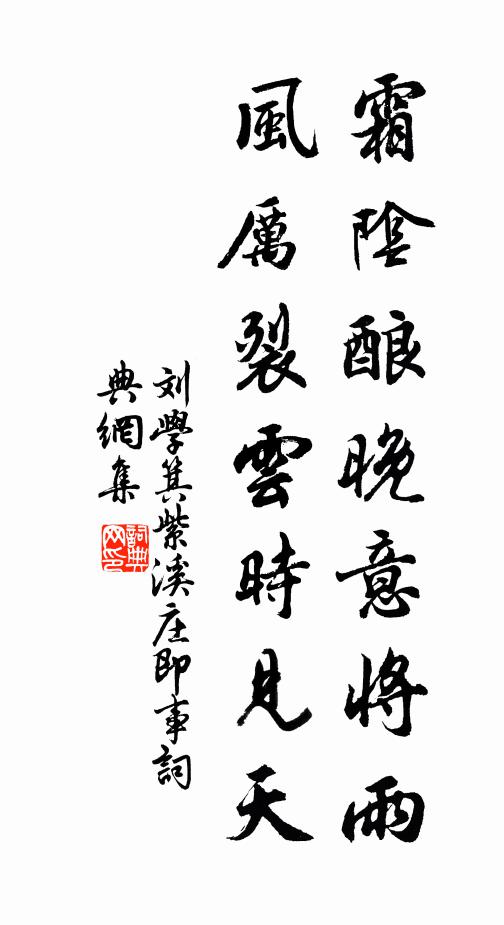 霜陰酿晚意將雨
風厲裂雲時見天
刘學箕紫溪庄即事詞
典網集
詞典網印